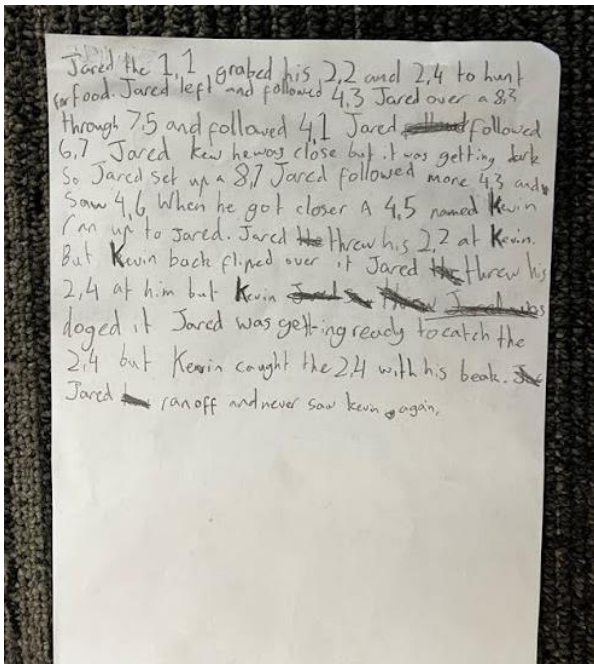 Jared the 1,1 grabed his 2,2 and 2,4 to hunt
for food. Jared left and followed 4,3 Jared over a 8,3
through 7,5 and followed 4,1 Jared followed
6,7 Jared kew he was close but it was getting dark
So Jared set up a 8,7 Jared followed more 4,3 and
Saw 4,6 When he got closer A 4,5 named Kevin
ran up to Jared. Jared threw his 2,2 at Kevin.
But Kevin back fliped over it Jared threw his
2,4 at him but Kevin
doged it Jared was getting ready to catch the
2,4 but Kevin caught the 2,4 with his beak.
Jared ran off and never saw kevin again.